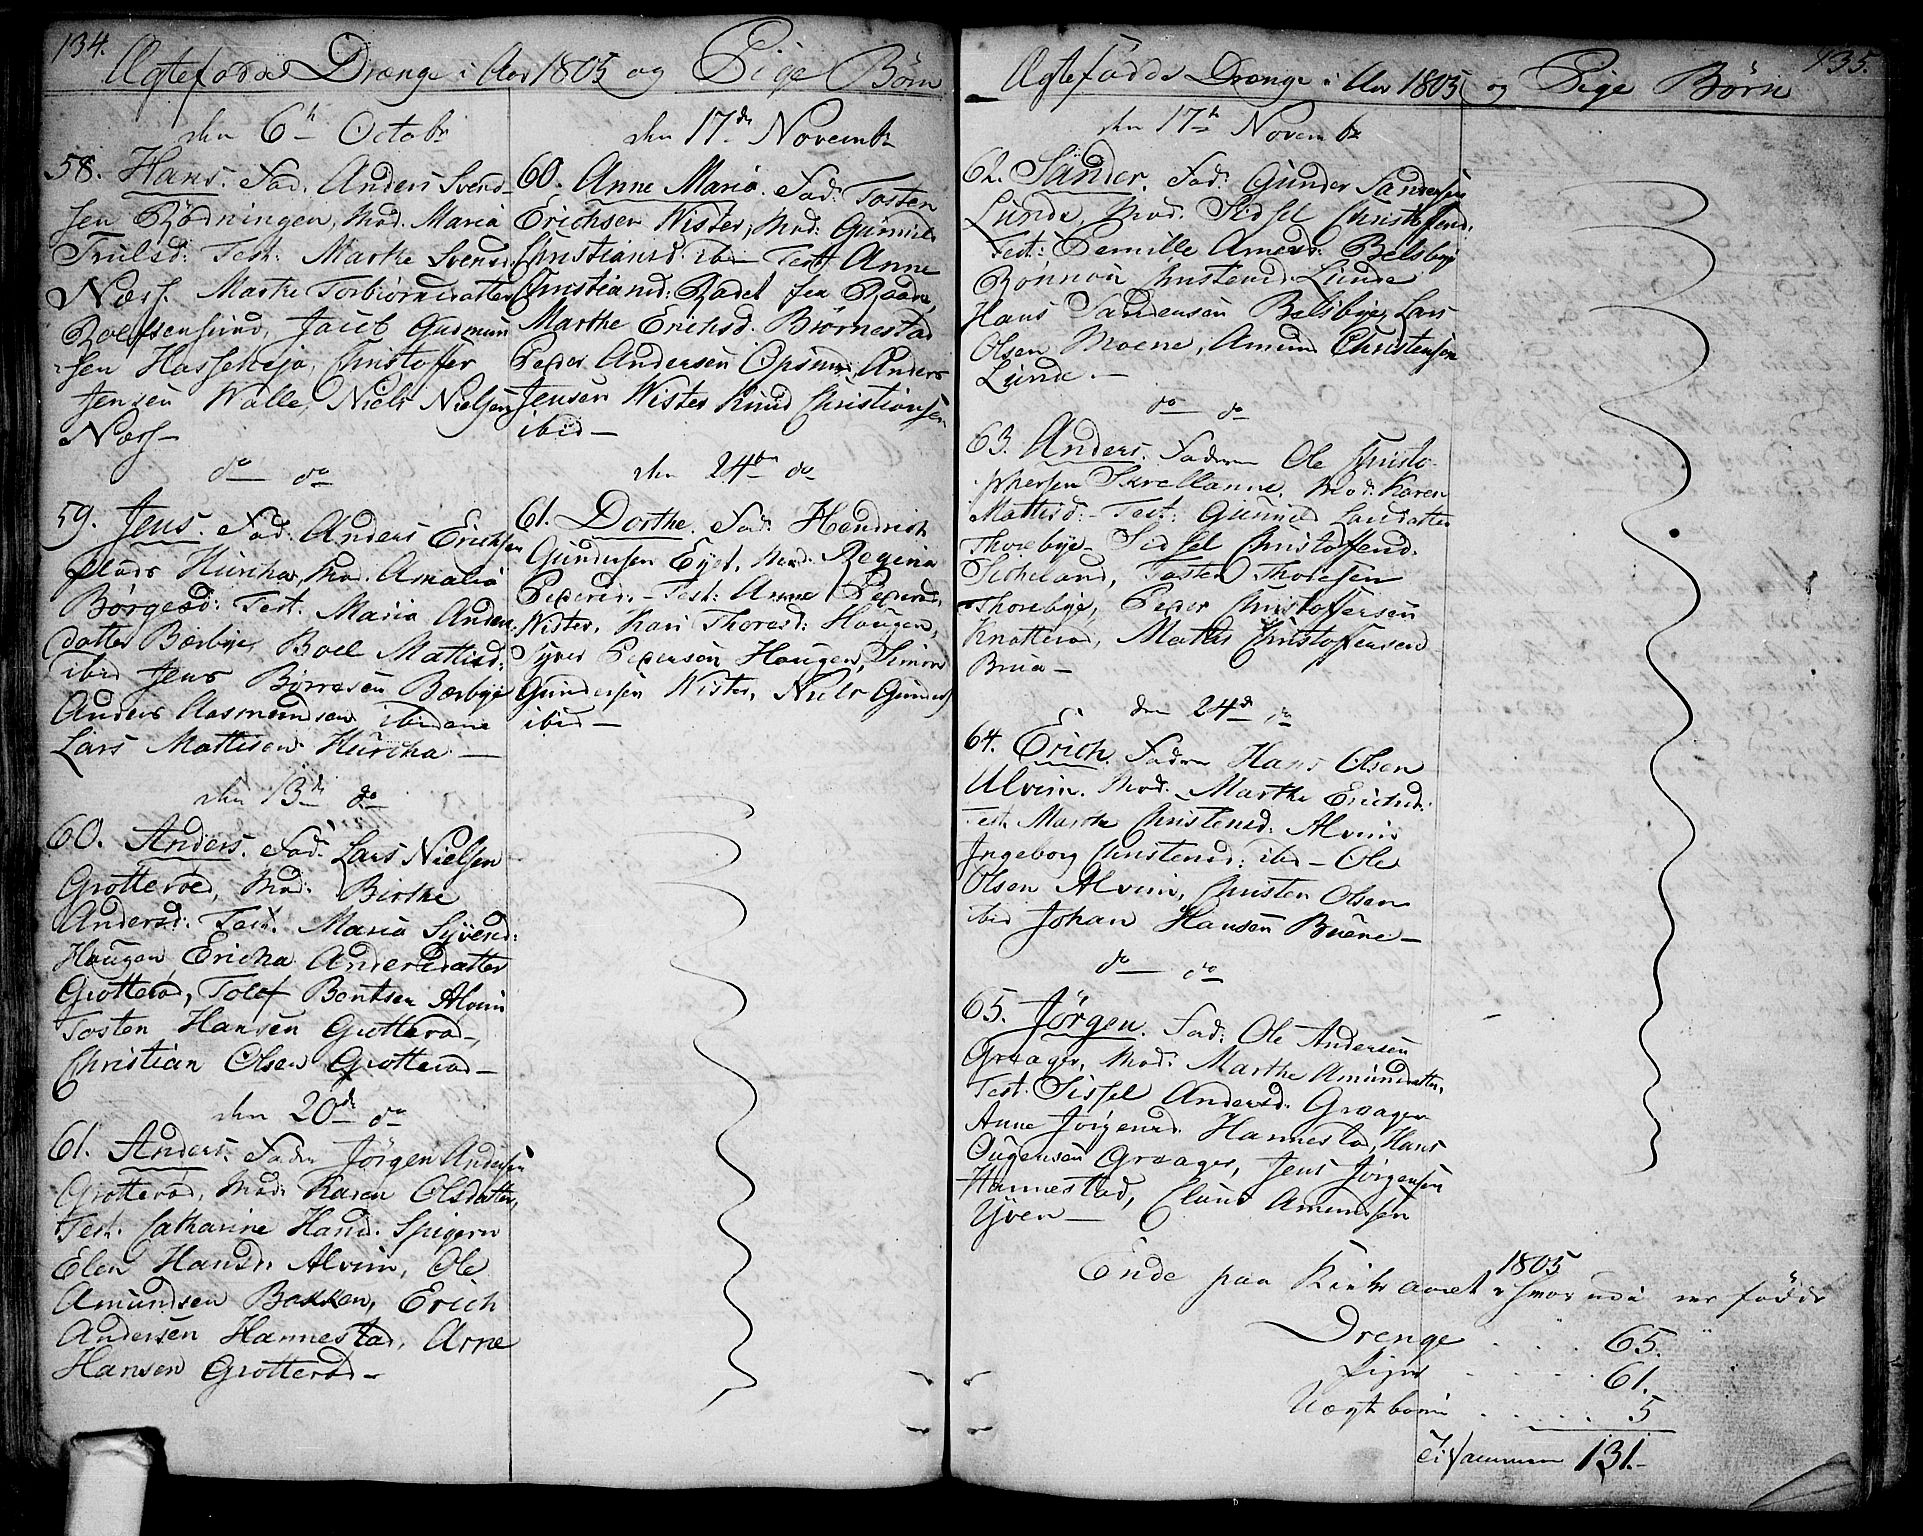 134.
Ægtefødde Drænge i Aar 1805 og Pige Børn
den 6te Octobr
58. Hans. Fad: Anders Svend-
sen Rødningen, Mod. Maria
Trulsd: Test: Marthe Svensd.
Næss. Marthe Torbiørnsdatter
Roelsensund, Jacob Gudmun
sen Hasseløja, Christoffer
Jensen Walle, Niels Nielsen
Næss-
do do
59. Jens. Fad: Anders Erichsen
plads Hurcha, Mod. Amalia
Børgesd: Test: Maria Anders
datter Bærbye, Boel Mattisd:
ibid Jens Børresen Bærbye
Anders Aasmundsen ibidem
Lars Mattisen Hurcha —
den 13de do
60. Anders. Fad: Lars Nielsen
Grotterød, Mod: Birthe
Andersd: Test: Maria Syversd:
Haugen Ericha Andersdatter
Grotterød, Tolof Bentsen Alvim
Tosten Hansen Grotterød-,
Christian Olsen Grotterød-
den 20de do
61. Anders. Fadr Jørgen Andersen
Grotterød, Mod: Karen Olsdatter,
Test: Catharine Hansd: Spigern
Elen Hansd: Alvim, Ole
Amundsen Bakken, Erich
Andersen Hannestad, Arne
Hansen Grotterød-
den 17de Novembr
60. Anne Maria. Fad: Tosten
Erichsen Wister, Mod: Gunnild
Christiansd: ibid- Test: Anne
Christiansd: Radet Raade,
Marthe Erichsd. Biørnestad
Peder Andersen Opsund, Anders
Jensen Wister Knud Christiansen
ibid —
den 24de do
61. Dorthe. Fad: Hendrich
Gundersen Eyet, Mod: Regina
Pedersd. - Test: Anne Pedersd,
Wister, Kari Thoresd: Haugen,
Syver Pedersen Haugen, Simon
Gundersen Wister, Niels Gunders
ibid —
135.
Ægtefødde Drænge i Aar 1805 og Pige Børn
den 17de Novembr
62. Sander. Fad: Gunder Sandersen
Lunde, Mod. Sidsel Christoffersd.
Test: Pernille Arnesd. Belsbye
Rønnou Christensd. Lunde
Hans Sandersen Belsbye, Lars
Olsen Moene, Amund Christensen
Lunde. —
do do
63. Anders. Faderen Ole Christo-
phersen Skrellanne. Mod: Karen
Mattisd:- Test: Gunnild Larsdatter
Thorebye- Sidsel Christoffersd.
Sicheland, Tosten Thoresen
Thorebye, Peder Christoffersen
Knatterød, Mathis Christoffersen
Brua —
den 24de do
64. Erich. Fadren Hans Olsen
Alvim. Mod. Marthe Erichsd.
Test. Marthe Christensd: Alvim
Ingeborg Christensd: ibid - Ole
Olsen Alvim, Christen Olsen
ibid Johan Hansen Buene-
do do
65. Jørgen. Fad: Ole Andersen
Graager, Mod: Marthe Amundsdatter,
Test. Sissel Andersd. Graager
Anne Jørgensd. Hannestad, Hans
Graager, Jens Jørgensen
Hannestad, Claus Amundsen
Yven —
Ende paa Kirke aaret 1805 hvor udi er fødde
Drenge . . . 65.
Piger . . . 61.
Uægt børn . . . 5
Tilsammen 131.-